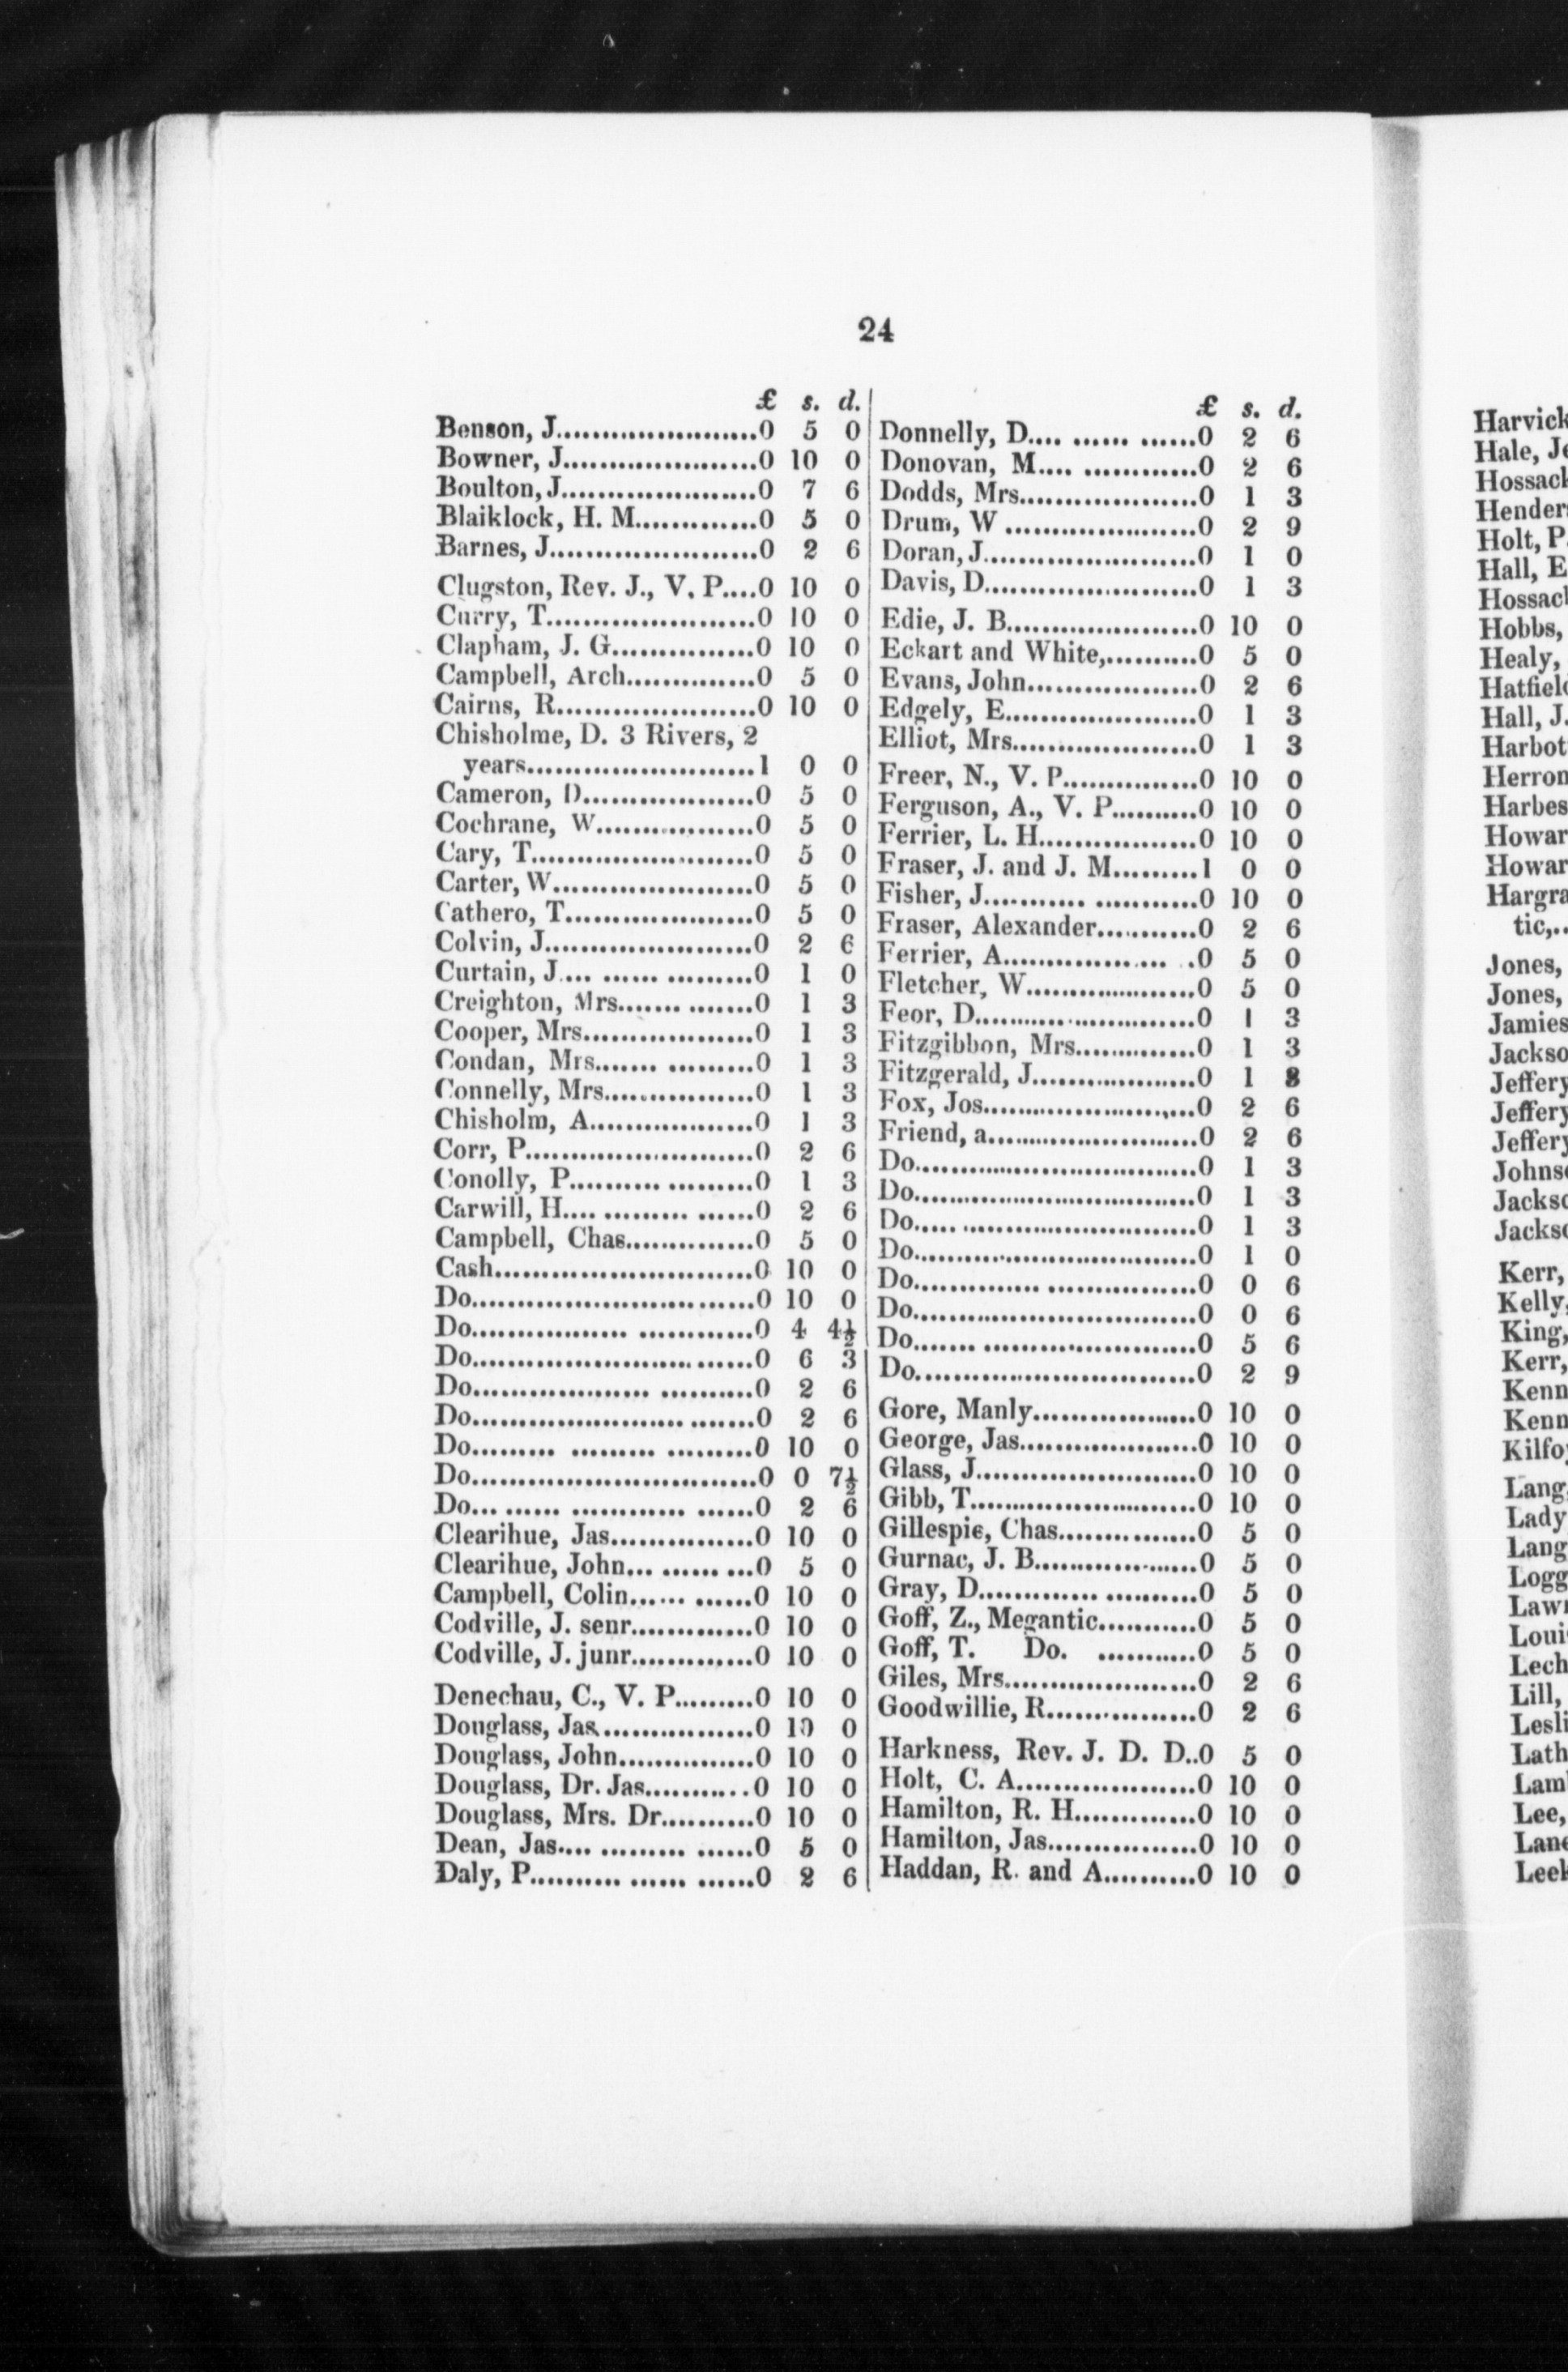 24
£ s. d.
Benson, J......................0 5 0
Bowner, J.....................0 10 0
Boulton, J.....................0 7 6
Blaiklock, H. M.............0 5 0
Barnes, J......................0 2 6
Clugston, Rev. J., V. P....0 10 0
Curry, T.......................0 10 0
Clapham, J. G................0 10 0
Campbell, Arch..............0 5 0
Cairns, R......................0 10 0
Chisholme, D. 3 Rivers, 2
years.........................1 0 0
Cameron, D...................0 5 0
Cochrane, W.................0 5 0
Cary, T........................0 5 0
Carter, W......................0 5 0
Cathero, T....................0 5 0
Colvin, J.......................0 2 6
Curtain, J.... ...... .........0 1 0
Creighton, Mrs....... ........0 1 3
Cooper, Mrs...................0 1 3
Condan, Mrs....... .........0 1 3
Connelly, Mrs................0 1 3
Chisholm, A..................0 1 3
Corr, P.........................0 2 6
Conolly, P.......... .........0 1 3
Carwill, H.... ......... ......0 2 6
Campbell, Chas..............0 5 0
Cash............................0 10 0
Do...............................0 10 0
Do................. ............0 4 4½
Do........................ ......0 6 3
Do................... ..........0 2 6
Do....................... .......0 2 6
Do......... ......... .........0 10 0
Do...............................0 0 7½
Do... ...... ............ ......0 2 6
Clearihue, Jas...............0 10 0
Clearihue, John... ...... ...0 5 0
Campbell, Colin...... ......0 10 0
Codville, J. senr.............0 10 0
Codville, J. junr.............0 10 0
Denechau, C., V. P.........0 10 0
Douglass, Jas.................0 10 0
Douglass, John...............0 10 0
Douglass, Dr. Jas...........0 10 0
Douglass, Mrs. Dr..........0 10 0
Dean, Jas.... ......... ......0 5 0
Daly, P.......... ...... ......0 2 6
£ s. d.
Donnelly, D.... ...... ......0 2 6
Donovan, M.... ............0 2 6
Dodds, Mrs...................0 1 3
Drum, W .....................0 2 9
Doran, J.......................0 1 0
Davis, D.......................0 1 3
Edie, J. B.....................0 10 0
Eckart and White,..........0 5 0
Evans, John..................0 2 6
Edgely, E.....................0 1 3
Elliot, Mrs....................0 1 3
Freer, N., V. P...............0 10 0
Ferguson, A., V. P..........0 10 0
Ferrier, L. H.................0 10 0
Fraser, J. and J. M.........1 0 0
Fisher, J........... ...........0 10 0
Fraser, Alexander...........0 2 6
Ferrier, A................. .0 5 0
Fletcher, W...................0 5 0
Feor, D........................0 1 3
Fitzgibbon, Mrs.............0 1 3
Fitzgerald, J..................0 1 8
Fox, Jos.......................0 2 6
Friend, a.......................0 2 6
Do...............................0 1 3
Do...............................0 1 3
Do..... .........................0 1 3
Do...............................0 1 0
Do.............. ................0 0 6
Do...............................0 0 6
Do....... .......................0 5 6
Do...............................0 2 9
Gore, Manly..................0 10 0
George, Jas...................0 10 0
Glass, J........................0 10 0
Gibb, T........................0 10 0
Gillespie, Chas...............0 5 0
Gurnac, J. B..................0 5 0
Gray, D............. ..........0 5 0
Goff, Z., Megantic...........0 5 0
Goff, T. Do. ...........0 5 0
Giles, Mrs.....................0 2 6
Goodwillie, R................0 2 6
Harkness, Rev. J. D. D..0 5 0
Holt, C. A....................0 10 0
Hamilton, R. H.............0 10 0
Hamilton, Jas................0 10 0
Haddan, R. and A..........0 10 0
Harvick
Hale, Je
Hossack
Hender
Holt, P.
Hall, E
Hossacl
Hobbs,
Healy,
Hatfield
Hall, J.
Harbot
Herron
Harbes
Howar
Howar
Hargra
tic,..
Jones,
Jones,
Jamies
Jackso
Jeffery
Jeffery
Jeffery
Johnso
Jackso
Jackso
Kerr,
Kelly,
King,
Kerr,
Kenn
Kenn
Kilfoy
Lang,
Lady
Lang
Logg
Lawr
Loui
Lech
Lill,
Lesli
Lath
Lam
Lee,
Lane
Leek